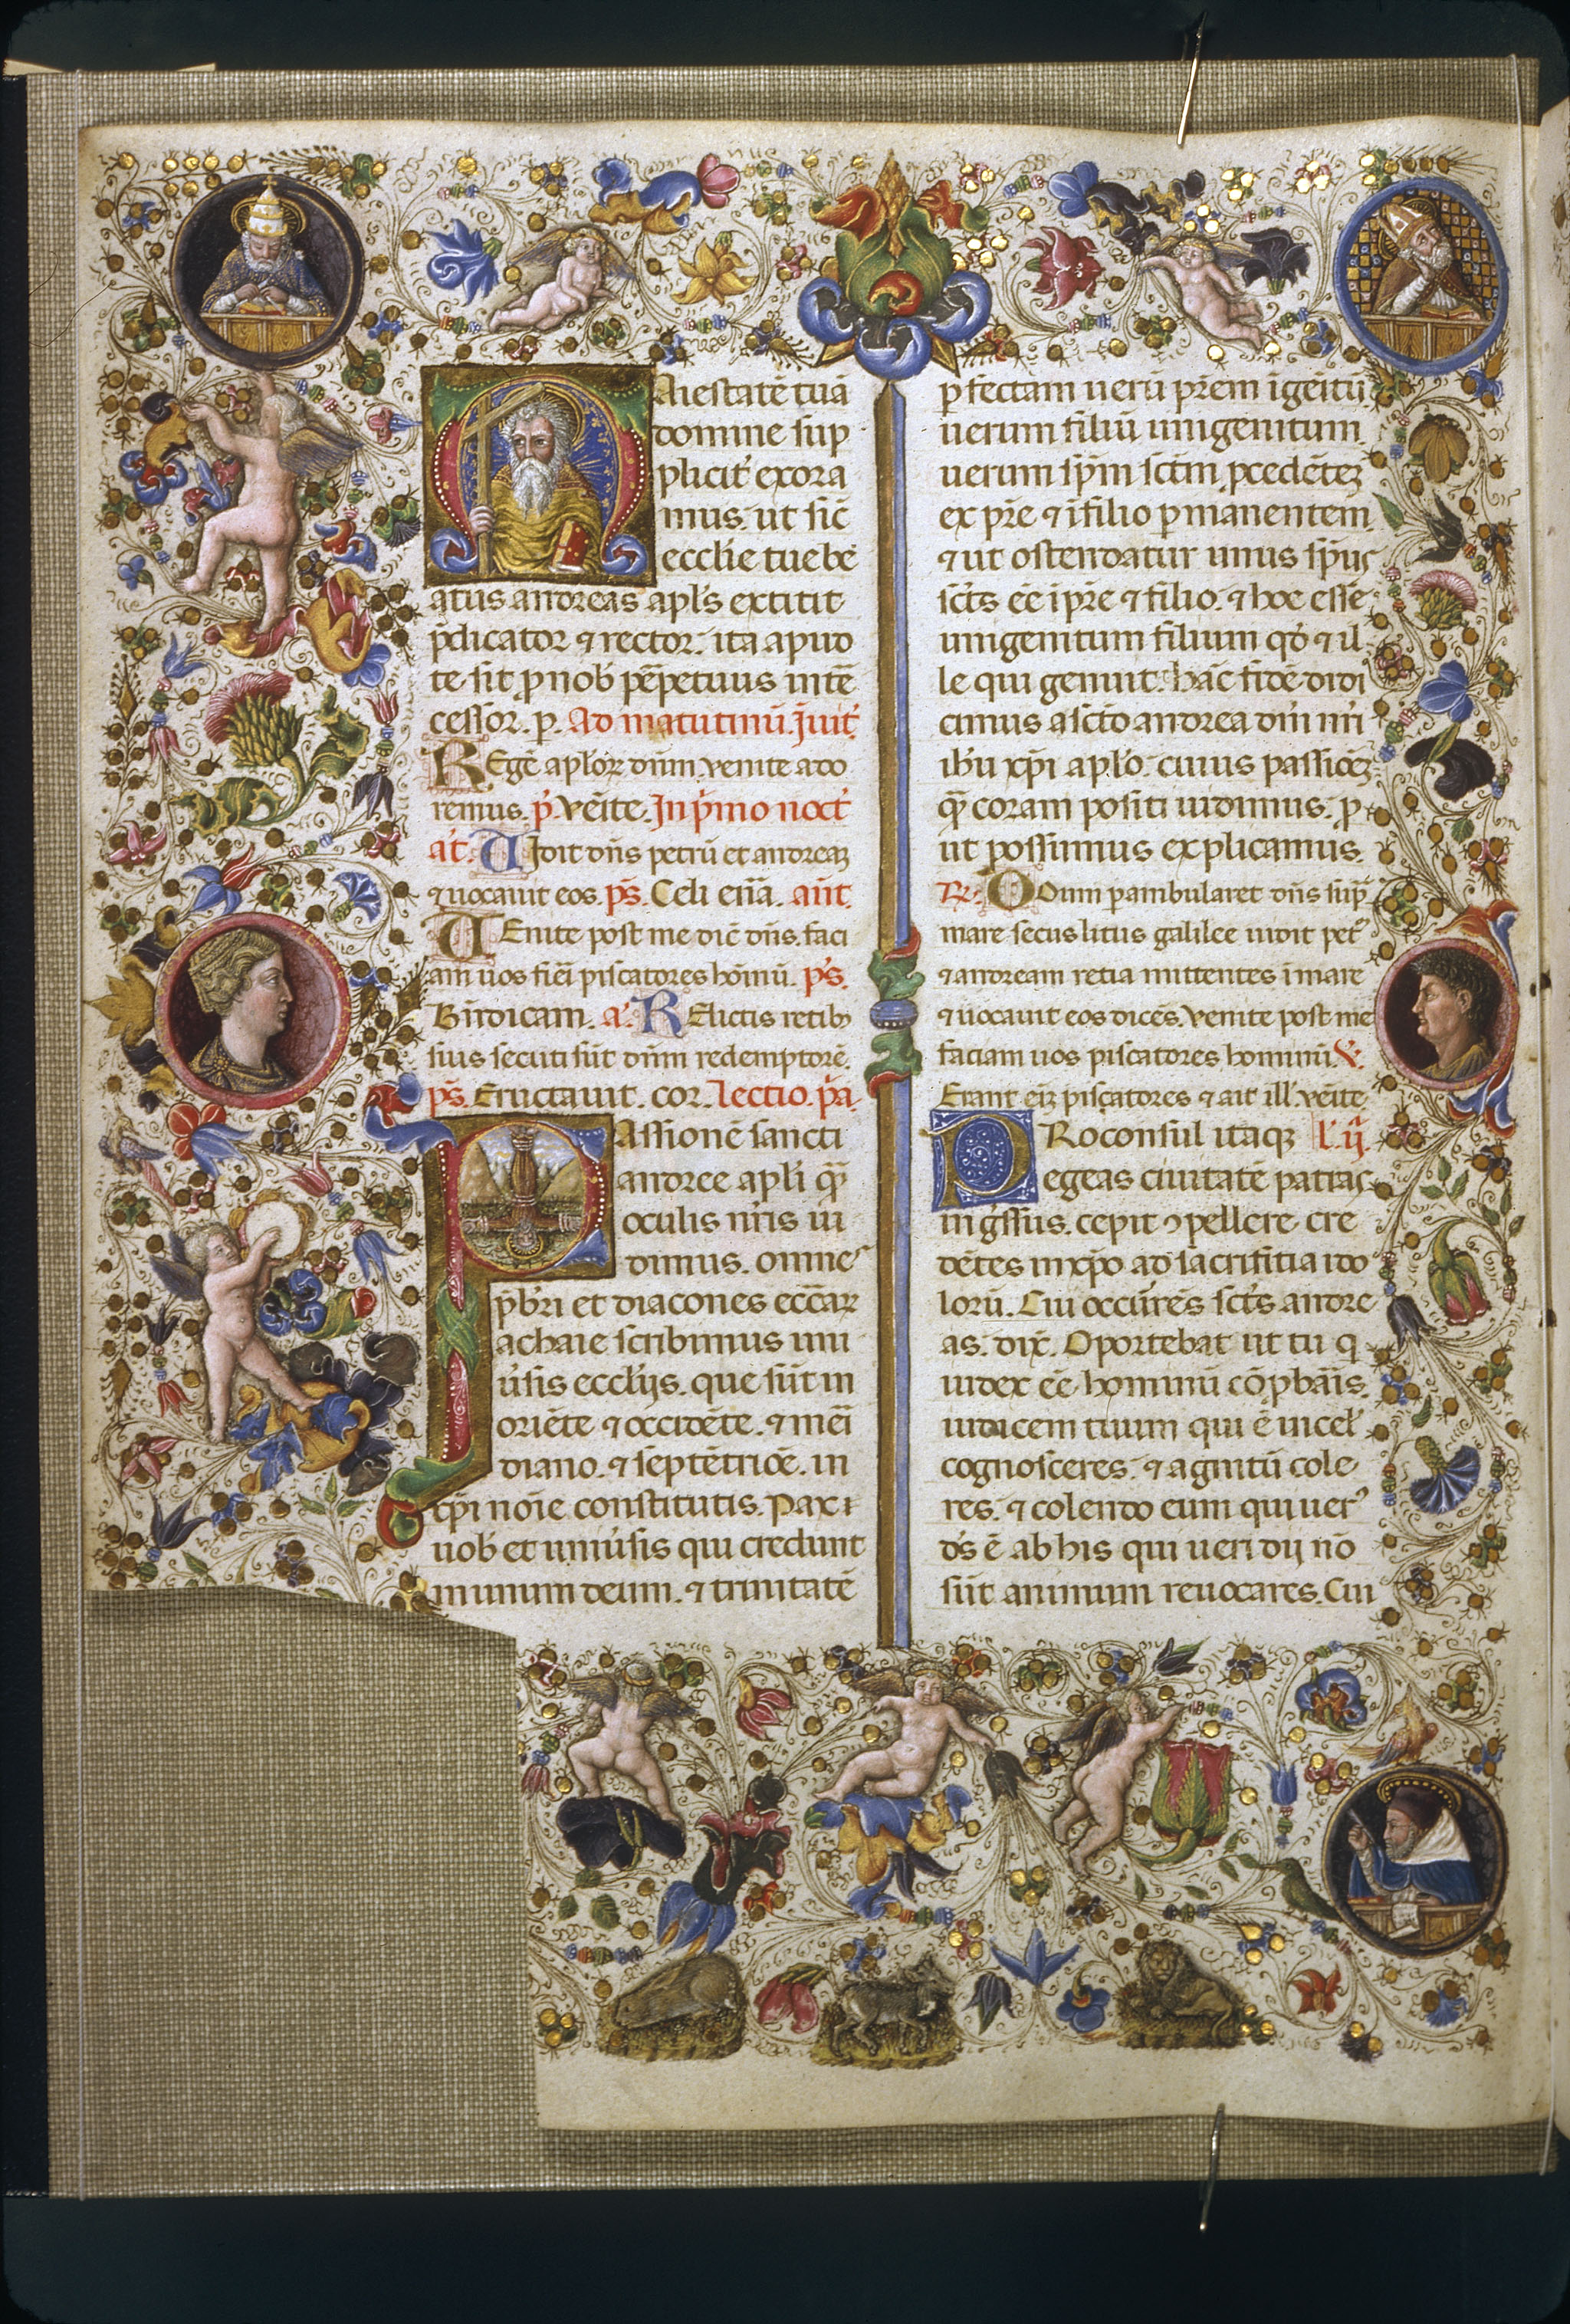 Aiestatē tuā
domine sup
plicit' exora
mus. ut sic̄
ecclīe tue be
atus andreas apl's extitit
p̄dicator ⁊ rector. ita apud
te sit ꝓ nob̄ pēpetuus inte
cessor. p. Ad matutinū. Juit'.
REgē aplōꝝ dn̄m. venite ado
remus. p̄. Venite. In p̄mo noct'
a't. UIdit dn̄s petrū et andreaꝫ
⁊ uocauit eos. ps̄. Celi enā. an̄t.
UEnite post me dic̄ dn̄s. faci
am uos fieri piscatores hoīnū. ps̄.
Bn̄dicam. a'. RElictis retib
suis secuti sūt dn̄m redemptorē.
ps̄. Eructauit. cor. Lectio. p̄a.
PAssionē sancti
andree apli qm̄
oculis nr̄is ui
dimus. omnes
pb̄ri et diacones eccāꝝ
achaie scribimus uni
ūsis eccl̄ijs. que sūt in
oriēte ⁊ occidēte. ⁊ meri
diano. ⁊ septētrioē. in
xp̄i noīe constitutis. Pax
uob̄ et uniūsis qui credunt
in unum deum. ⁊ trinitatē
ꝑfectam uerū pr̄em īgeitū.
uerum filiū unigenitum.
uerum sp̄m sctm̄ ꝓcedēteꝫ
ex pr̄e ⁊ ī filio ꝑmanentem
⁊ ut ostendatur unus sp̄us
sc̄ts eē ī pr̄e ⁊ filio. ⁊ hoc esse
unigenitum filium qd̄ ⁊ il
le qui genuit. hāc fidē didi
cimus a sc̄to andrea dn̄i nr̄i
ih̄u xp̄i aplo. cuius passioēꝫ
qm̄ coram positi uidimus. ꝓ
ut possumus explicamus.
℟. DDum ꝑambularet dn̄s sup̄
mare secus litus galilee uidit pet'
⁊ andream retia mittentes ī mare
⁊ uocauit eos dicēs. Venite post me
faciam uos piscatores hominū. ℣.
Erant eīꝫ piscatores ⁊ ait ill'. venite
PRoconsul itaqꝫ l'. ij.
egeas ciuitatē patras
ingr̄ssus. cepit ꝯpellere cre
dētes in xp̄o ad sacrifitia ido
lorū. Cui occūrēs sc̄ts andre
as. dix̄. Oportebat ut tu q
iudex eē hominū cōꝓbaīs.
iudicem tuum qui ē in cel'
cognosceres. ⁊ agnitū cole
res. ⁊ colendo eum qui uer'
d's ē ab his qui ueri dij nō
sūt animum reuocares. Cui